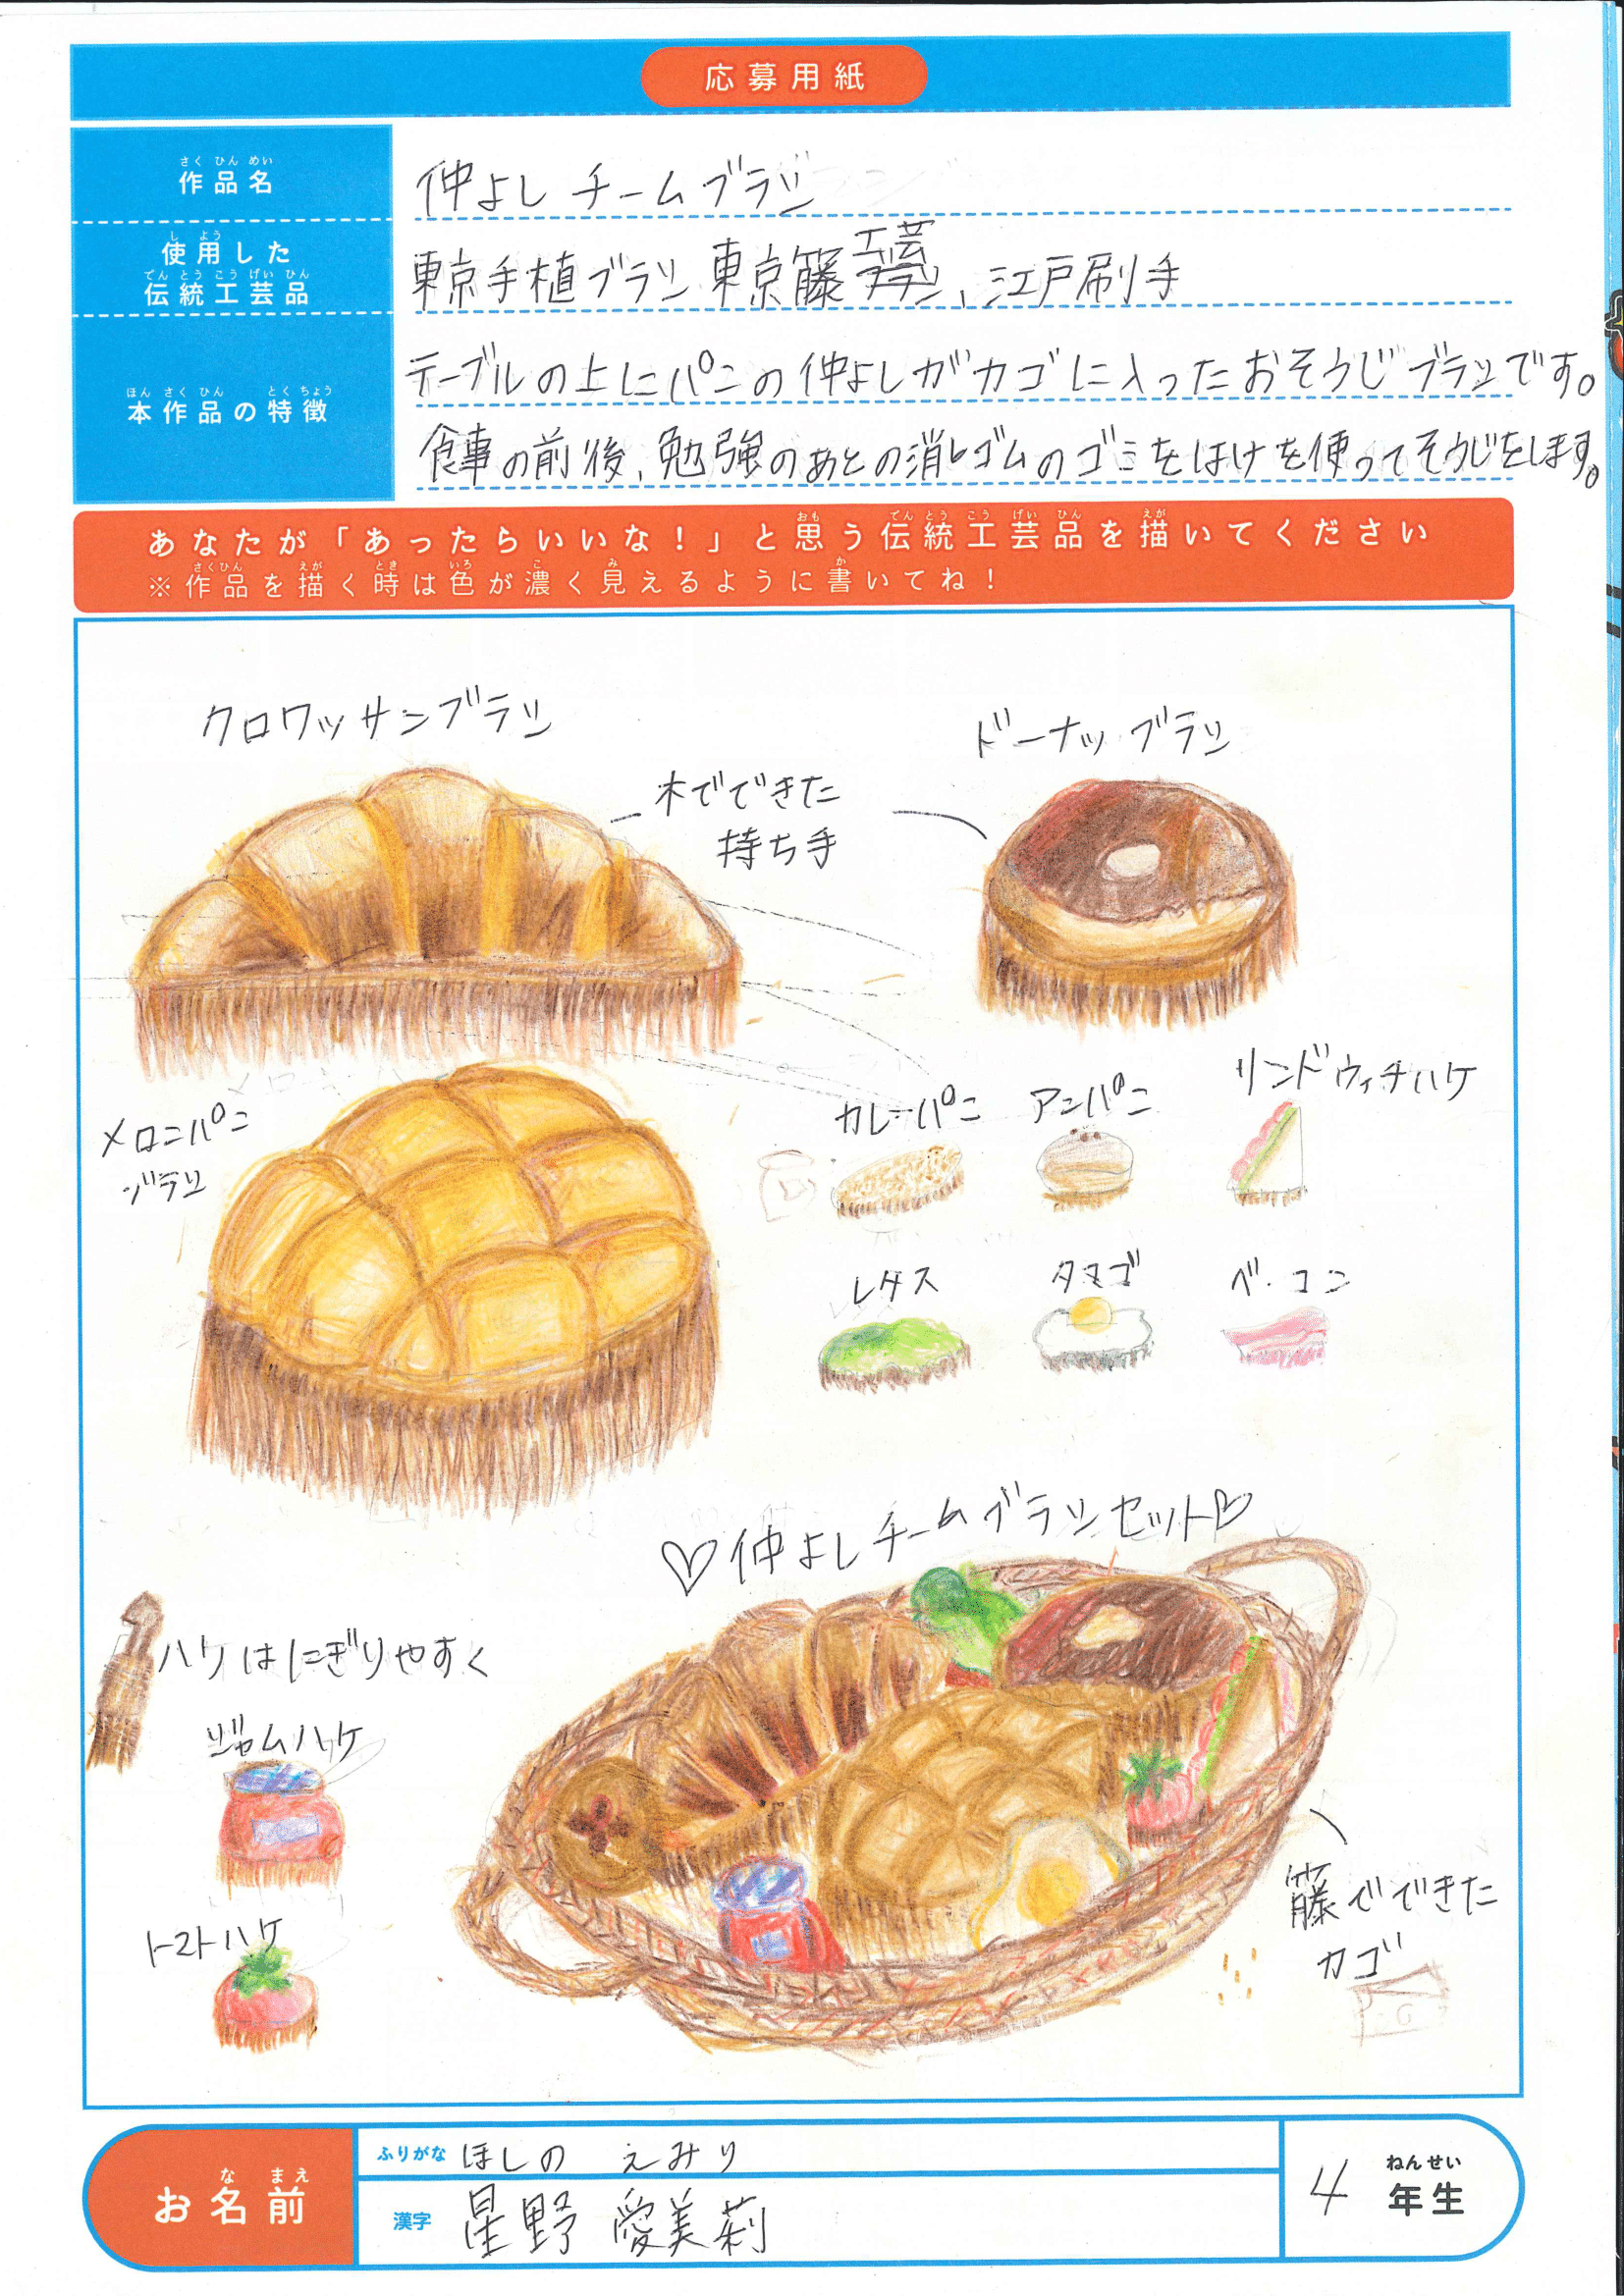 応募用紙
さくひんめい
作品名
仲よしチームブラシ
しよう
使用した
でんとうこうげいひん
伝統工芸品
東京手植ブラシ 東京籐工芸、江戸刷手
ほんさくひん とくちょう
本作品の特徴
テーブルの上にパンの仲よしがカゴに入ったおそうじブラシです。
食事の前後、勉強のあとの消しゴムのゴミをはけを使ってそうじをします。
おも でんとうこうげいひん えが
あなたが「あったらいいな！」と思う伝統工芸品を描いてください
さくひん えが とき いろ こ み か
※作品を描く時は色が濃く見えるように書いてね！
クロワッサンブラシ
ドーナッツブラシ
木でできた
持ち手
メロンパン
ブラシ
カレーパン
アンパン
サンドウィチハケ
レタス
タマゴ
ベーコン
♡仲よしチームブラシセット♡
ハケはにぎりやすく
ジャムハケ
トマトハケ
籐でできた
カゴ
なまえ
お名前
ふりがな ほしの えみり
漢字 星野 愛美莉
ねんせい
4 年生